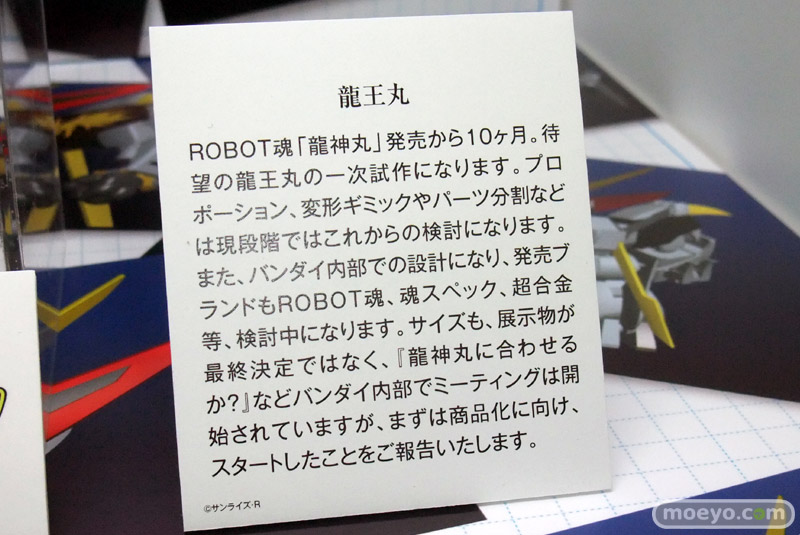 龍王丸
ROBOT魂「龍神丸」発売から10ヶ月。待
望の龍王丸の一次試作になります。プロ
ポーション、変形ギミックやパーツ分割など
は現段階ではこれからの検討になります。
また、バンダイ内部での設計になり、発売ブ
ランドもROBOT魂、魂スペック、超合金
等、検討中になります。サイズも、展示物が
最終決定ではなく、『龍神丸に合わせる
か?』などバンダイ内部でミーティングは開
始されていますが、まずは商品化に向け、
スタートしたことをご報告いたします。
©サンライズ・R
moeyo.com